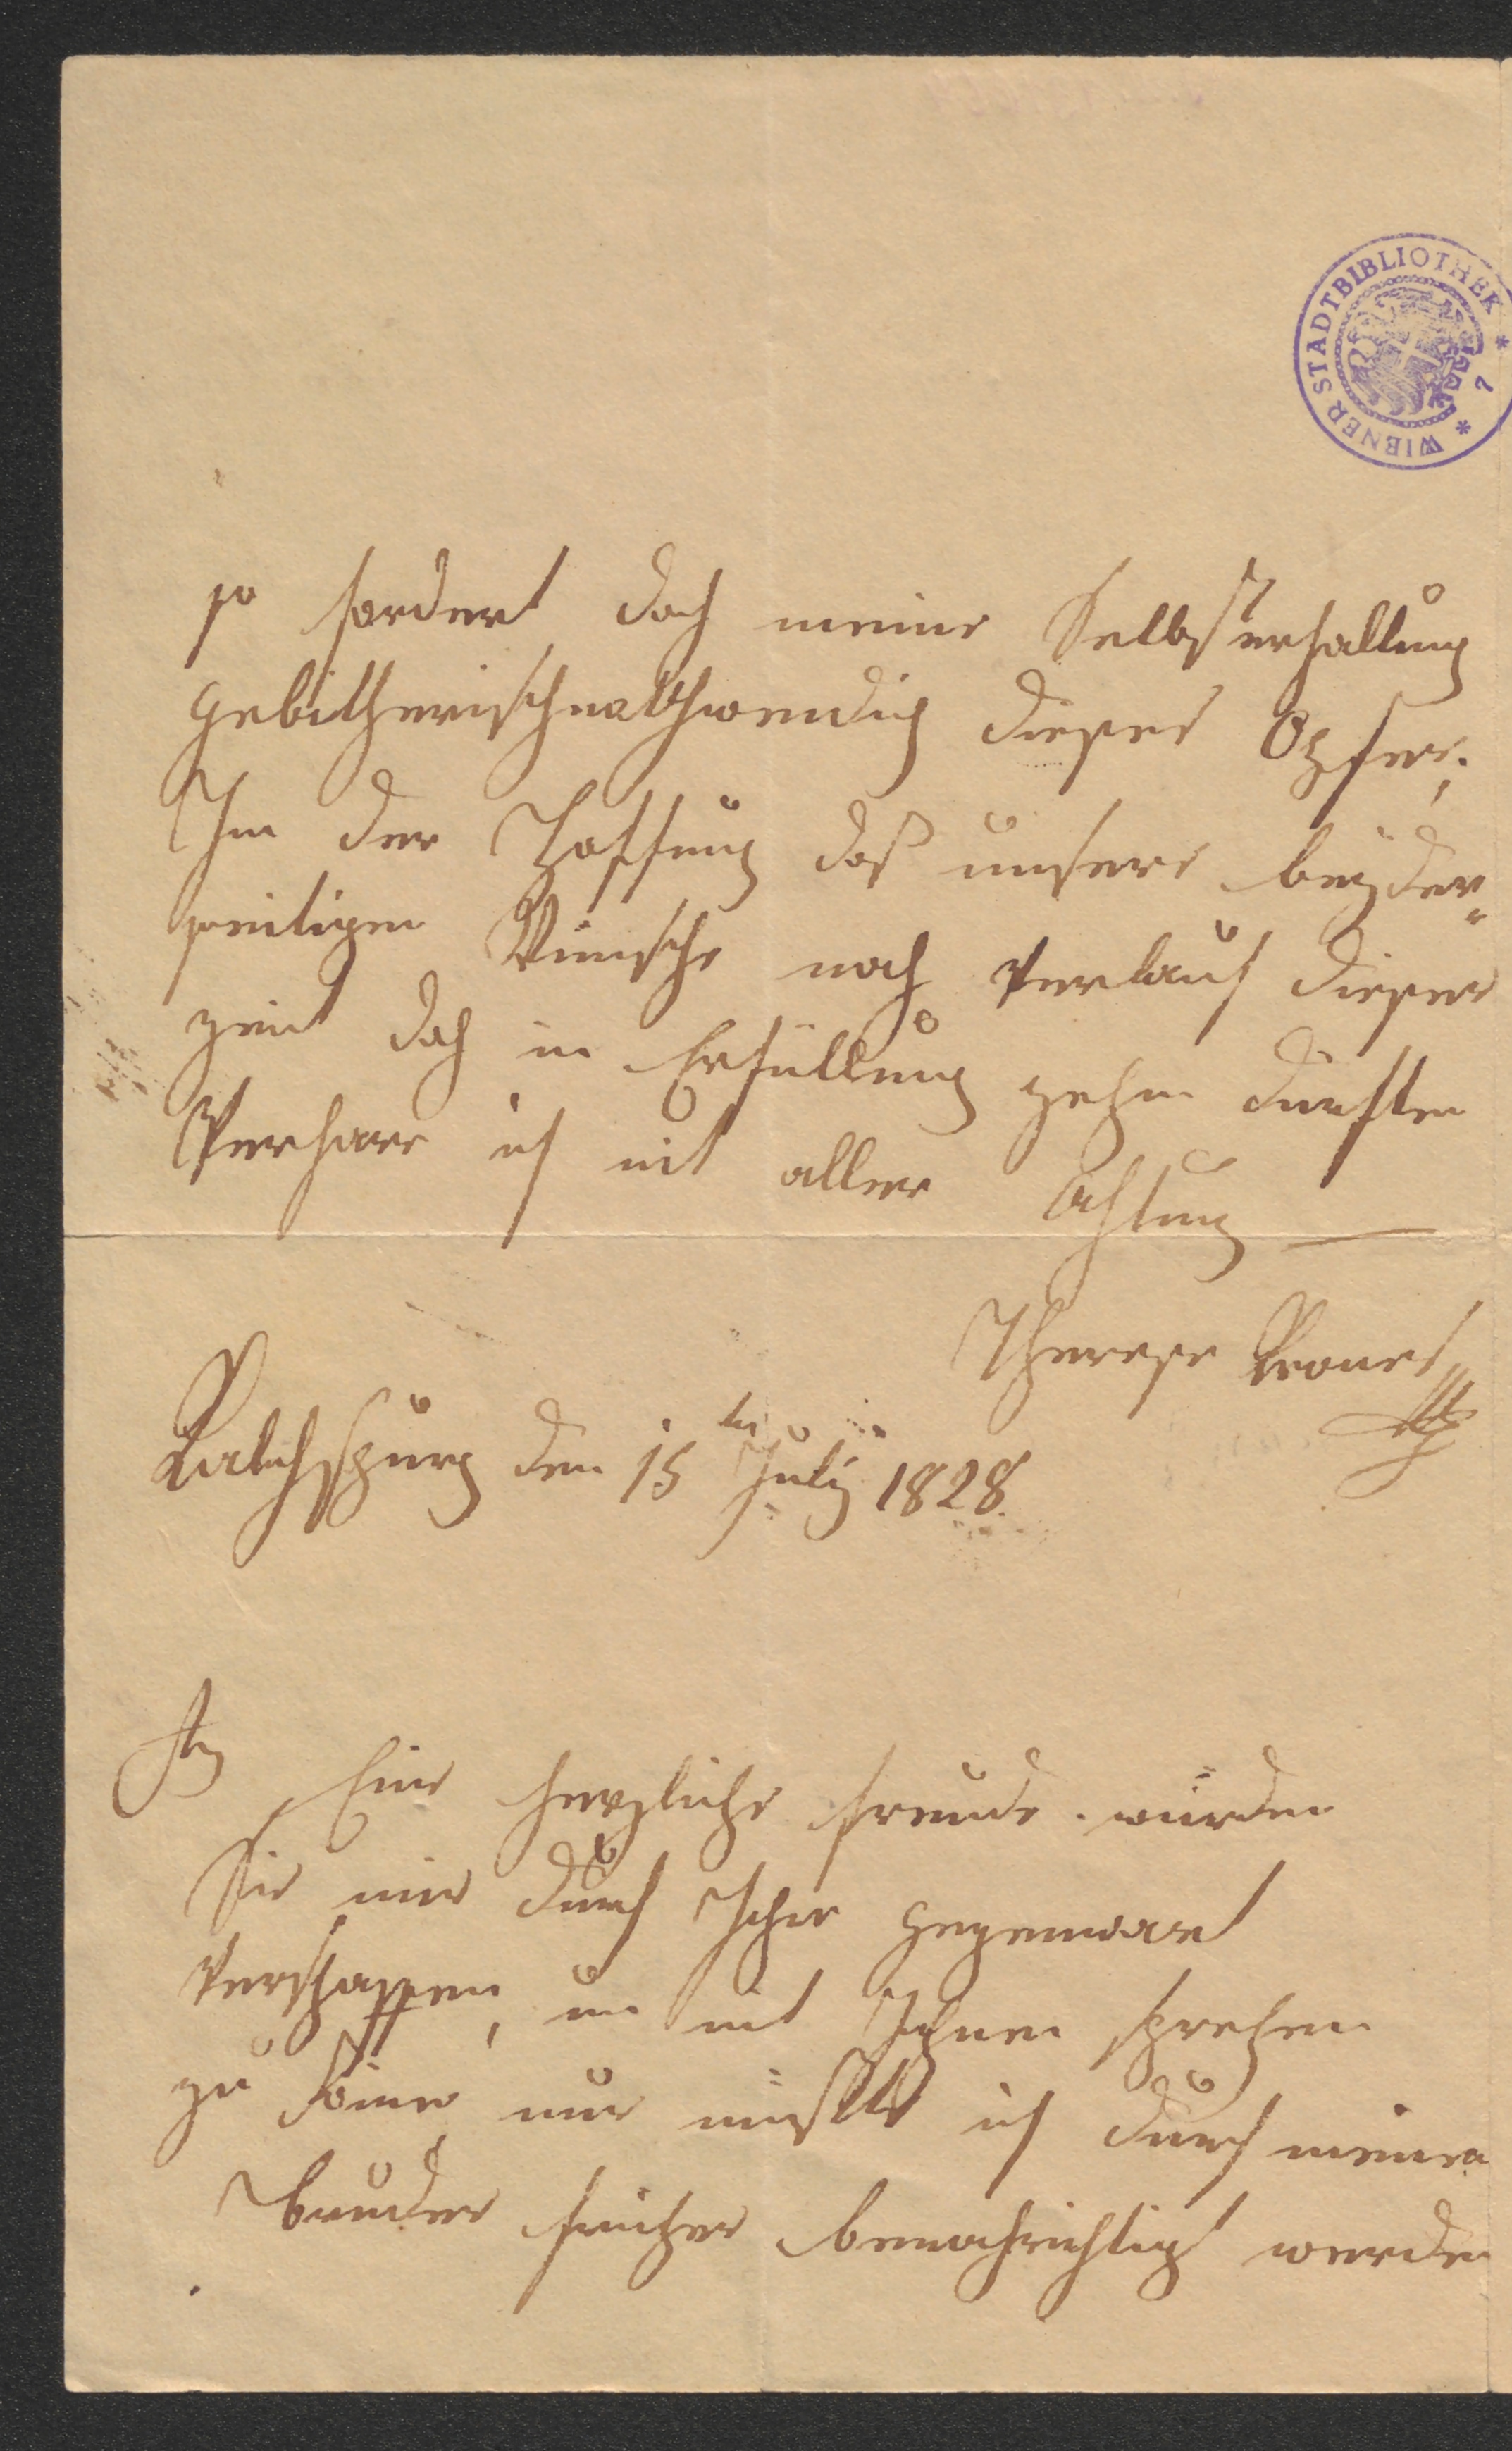 WIENER STADTBIBLIOTHEK * 7 *
so fordert doch meine Selbsterhaltung
gebitherischnothwendig dieses Opfer;
In der Hoffnung daß unsere beyder„
seitigen Wünsche nach Verlauf dieser
Zeit doch in Erfüllung gehen dürften
Verharre ich mit aller Achtung —
Therese Krones
Kalchsburg den 15ten July 1828.
Eine herzliche Freude würden
Sie mir durch Ihre Gegenwart
verschaffen, um mit Ihnen sprechen
zu könen nur müßte ich durch meinen
Bruder früher benachrichtigt werden